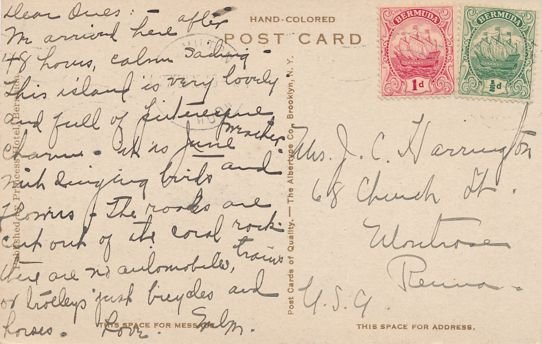 Dear Ones: - after
We arrived here
48 hours, calm sailing -
This island is very lovely
and full of picturesque
charm - It is June weather
with singing birds and
flowers - The roads are
cut out of the coral rock
there are no automobiles, trains
or trolleys just bicycles and
horses. Love.
HAND-COLORED
POST CARD
BERMUDA
1d
BERMUDA
½d
Mrs. J. C. Harrington
68 Church St.
Montrose
Penna.
U.S.A.
Published for Princess Hotel, Bermuda
Post Cards of Quality. — The Albertype Co., Brooklyn, N. Y.
THIS SPACE FOR MESSAGE.
THIS SPACE FOR ADDRESS.